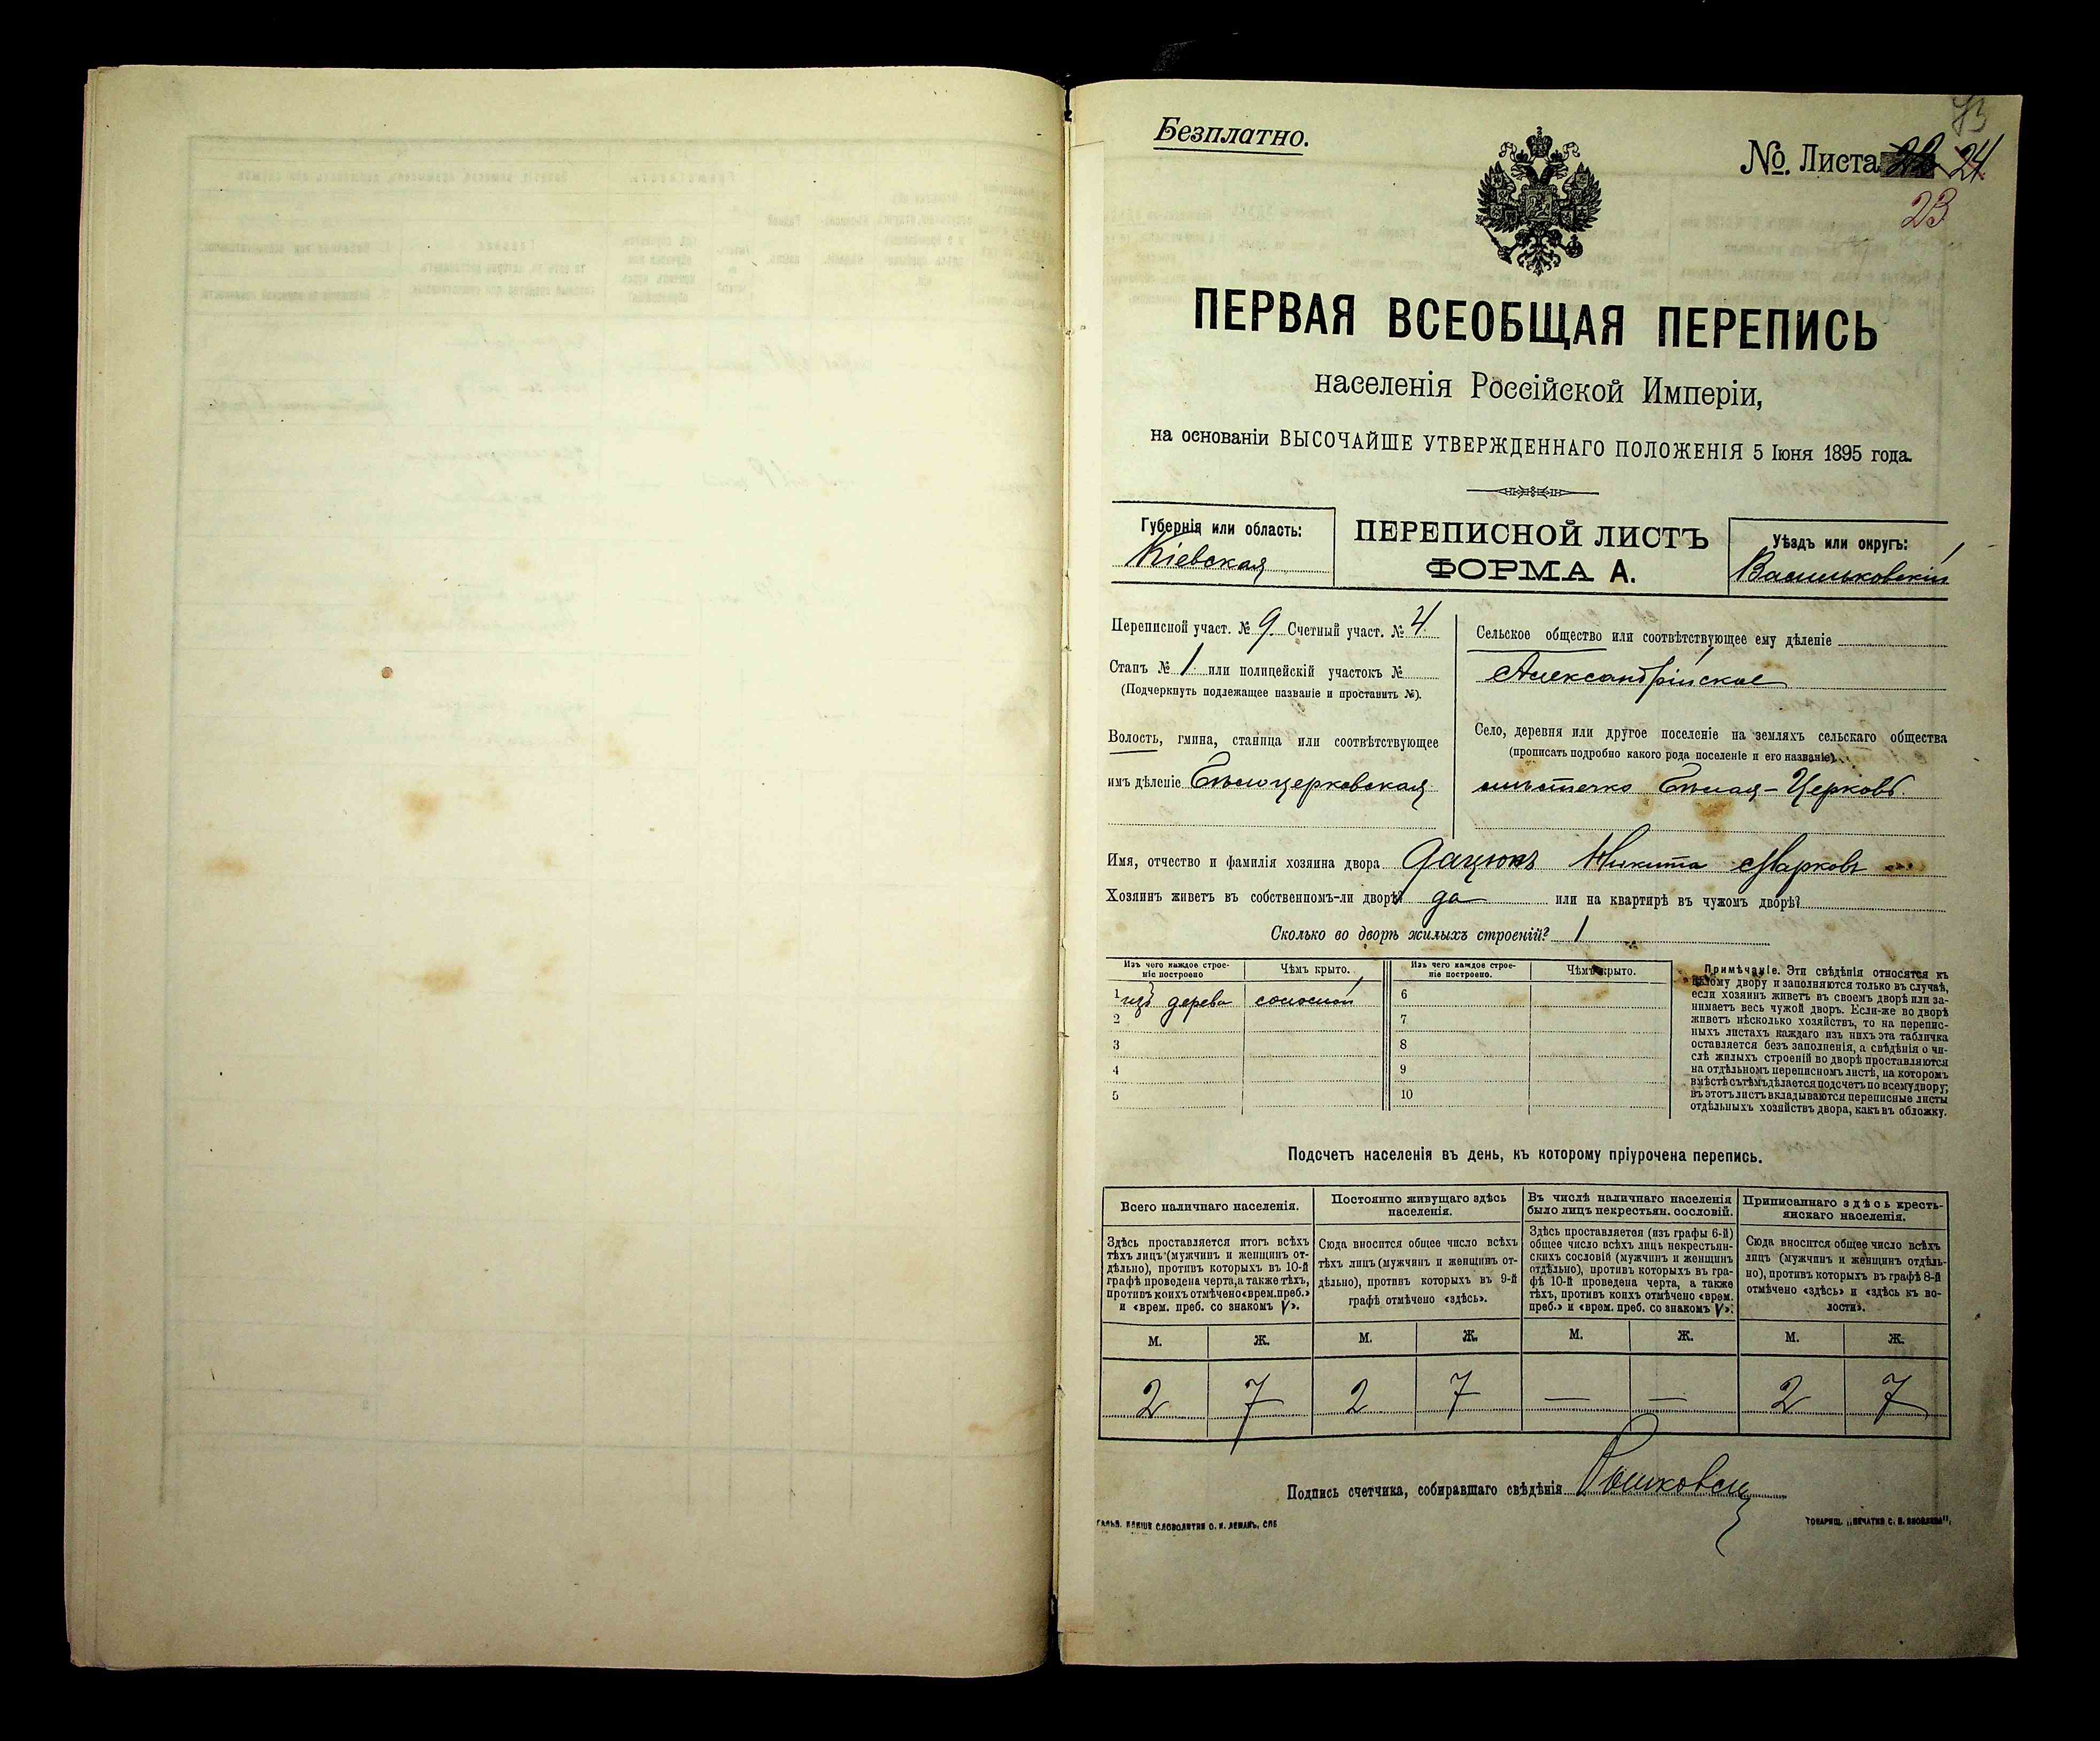 73
Безплатно.
№. Листа 24.
23
ПЕРВАЯ ВСЕОБЩАЯ ПЕРЕПИСЬ
населенія Россійской Имперіи,
на основаніи ВЫСОЧАЙШЕ УТВЕРЖДЕННАГО ПОЛОЖЕНІЯ 5 Іюня 1895 года.
Губернія или область:
Кіевская
ПЕРЕПИСНОЙ ЛИСТЪ
ФОРМА А.
Уѣздъ или округъ:
Васильковскій
Переписной участ. № 9. Счетный участ. № 4.
Станъ № 1. или полицейскій участокъ №
(Подчеркнуть подлежащее названіе и проставить №).
Волость, гмина, станица или соотвѣтствующее
имъ дѣленіе Бѣлоцерковская
Сельское общество или соотвѣтствующее ему дѣленіе
Александрійское
Село, деревня или другое поселеніе на земляхъ сельскаго общества
(прописать подробно какого рода поселеніе и его названіе).
мѣстечко Бѣлая-Церковь.
Имя, отчество и фамилія хозяина двора Дацюкъ Никита Марковъ
Хозяинъ живетъ въ собственномъ-ли дворѣ? да или на квартирѣ въ чужомъ дворѣ?
Сколько во дворѣ жилыхъ строеній? 1
Изъ чего каждое строе-
ніе построено
Чѣмъ крыто.
Изъ чего каждое строе-
ніе построено.
Чѣмъ крыто.
1 изъ дерева соломой 6
2 7
3 8
4 9
5 10
Примѣчаніе. Эти свѣдѣнія относятся къ
цѣлому двору и заполняются только въ случаѣ,
если хозяинъ живетъ въ своемъ дворѣ или за-
нимаетъ весь чужой дворъ. Если-же во дворѣ
живетъ нѣсколько хозяйствъ, то на перепис-
ныхъ листахъ каждаго изъ нихъ эта табличка
оставляется безъ заполненія, а свѣдѣнія о чи-
слѣ жилыхъ строеній во дворѣ проставляются
на отдѣльномъ переписномъ листѣ, на которомъ
вмѣстѣ съ тѣмъ дѣлается подсчетъ по всему двору;
въ этотъ листъ вкладываются переписные листы
отдѣльныхъ хозяйствъ двора, какъ въ обложку.
Подсчетъ населенія въ день, къ которому пріурочена перепись.
Всего наличнаго населенія.
Здѣсь проставляется итогъ всѣхъ
тѣхъ лицъ (мужчинъ и женщинъ от-
дѣльно), противъ которыхъ въ 10-й
графѣ проведена черта, а также тѣхъ,
противъ коихъ отмѣчено «врем. преб.»
и «врем. преб. со знакомъ V».
Постоянно живущаго здѣсь
населенія.
Сюда вносится общее число всѣхъ
тѣхъ лицъ (мужчинъ и женщинъ от-
дѣльно), противъ которыхъ въ 9-й
графѣ отмѣчено «здѣсь».
Въ числѣ наличнаго населенія
было лицъ некрестьян. сословій.
Здѣсь проставляется (изъ графы 6-й)
общее число всѣхъ лицъ некрестьян-
скихъ сословій (мужчинъ и женщинъ
отдѣльно), противъ которыхъ въ гра-
фѣ 10-й проведена черта, а также
тѣхъ, противъ коихъ отмѣчено «врем.
преб.» и «врем. преб. со знакомъ V».
Приписаннаго здѣсь кресть-
янскаго населенія.
Сюда вносится общее число всѣхъ
лицъ (мужчинъ и женщинъ отдѣль-
но), противъ которыхъ въ графѣ 8-й
отмѣчено «здѣсь» и «здѣсь къ во-
лости».
М. Ж. М. Ж. М. Ж. М. Ж.
2 7 2 7 — — 2 7
Подпись счетчика, собиравшаго свѣдѣнія
СЛОВОЛИТНИ О. И. ЛЕМАНЪ, СПБ
ТОВАРИЩ. „ПЕЧАТНИ С. П. ЯКОВЛЕВА",